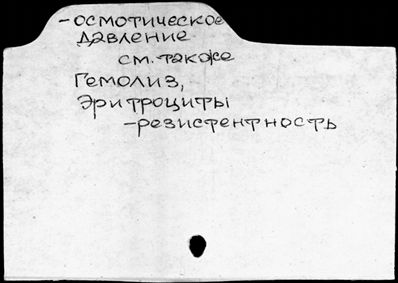 -осмотическое
давление
см. также
Гемолиз,
Эритроциты
-резистентность